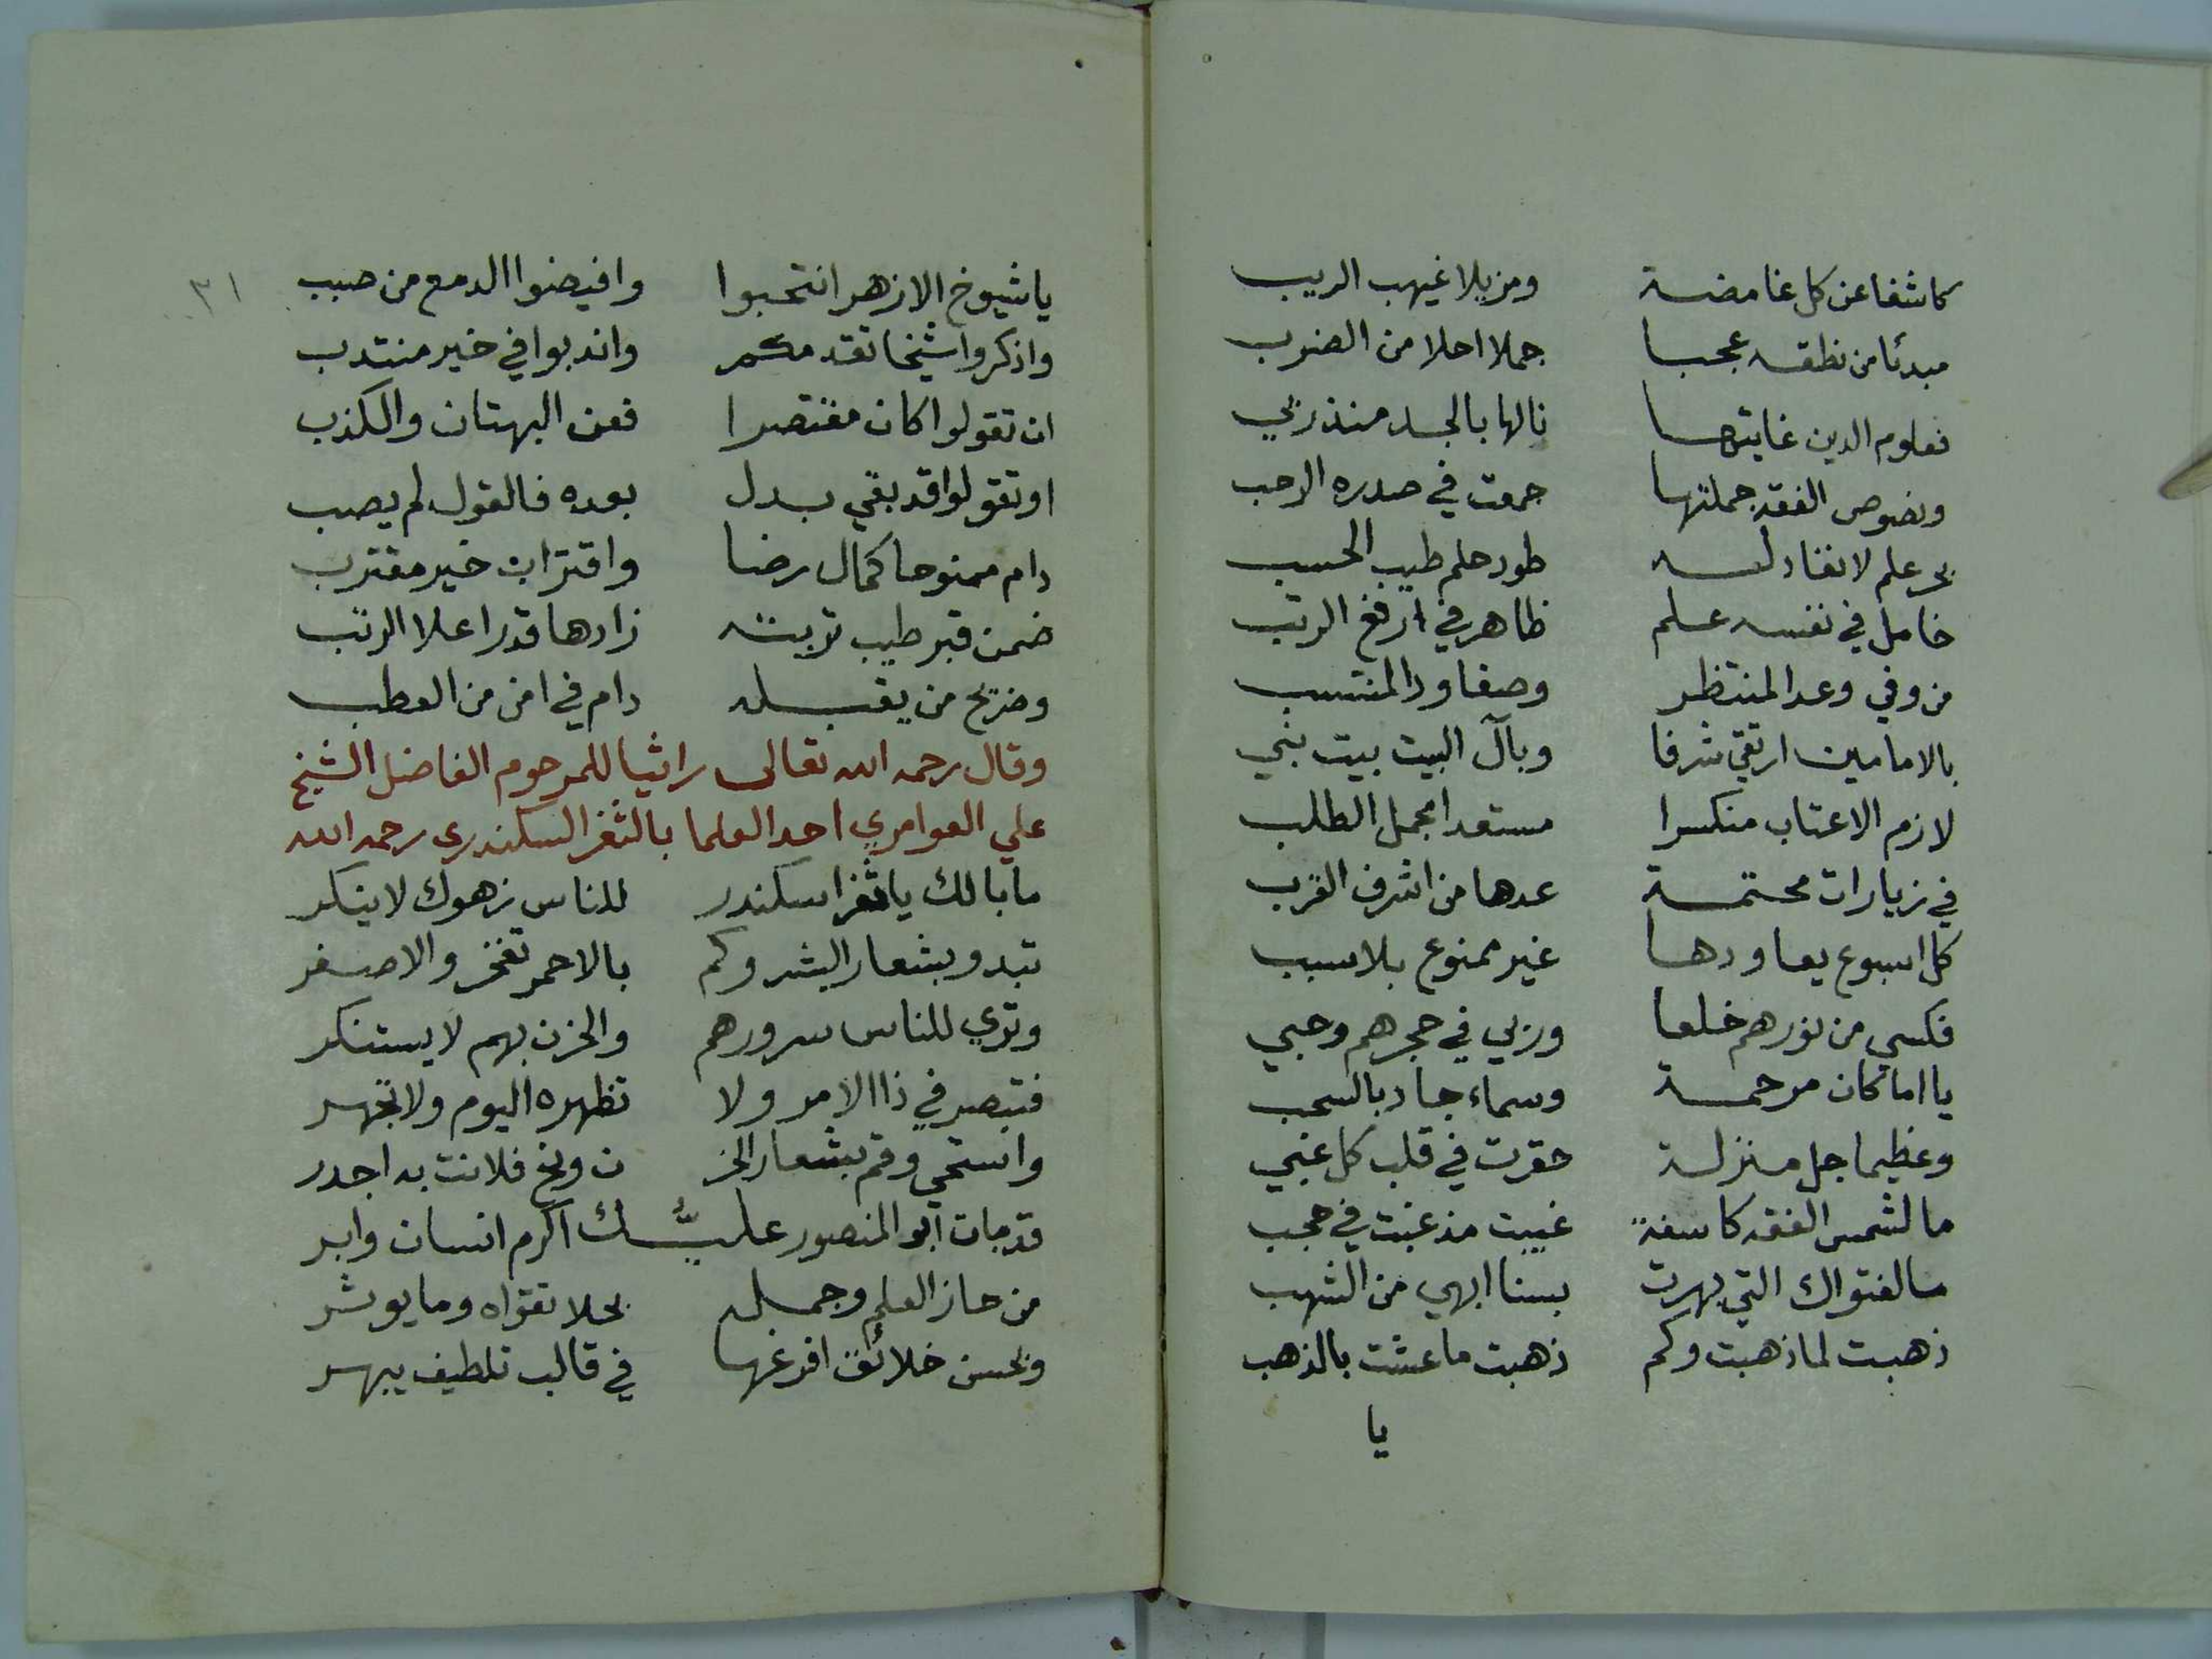 كاشفا عن كل غامضة ومزيلا غيهب الريب
مبدئا من نطقه عجبا جملا احلا من الضرب
فعلوم الدين غايتها نالها بالجد منذ ربي
ونصوص الفقه جملتها جمعت في صدره الرحب
بحر علم لا نفاد له طود حلم طيب الحسب
خامل في نفسه علم ظاهر في ارفع الرتب
من وفي وعد المنتظر وصفا ودا لمنتسب
بالامامين ارتقي شرفا وبآل البيت بيت نبي
لازم الاعتاب منكسرا مستعدا مجمل الطلب
في زيارات محتمة عدها من اشرف القرب
كل اسبوع يعاودها غير ممنوع بلا سبب
فكسي من نورهم خلعا وربي في حجرهم وحبي
يا اماما كان مرحمة وسماء جاد بالسحب
وعظيما جل منزلة حقرت في قلب كل غبي
ما لشمس الفقه كاسفة غيبت مذ غبت في حجب
ما لفتواك التي بهرت بسنا ابهي من الشهب
ذهبت لما ذهبت وكم ذهبت ما عشت بالذهب
يا
٣١
يا شيوخ الازهر انتحبوا وافيضوا الدمع من صبب
واذكروا شيخا تقدمكم واندبوا في خير منتدب
ان تقولوا كان مقتصرا فعن البهتان والكذب
او تقولوا قد بقي بدل بعده فالقول لم يصب
دام ممنوحا كمال رضا واقتراب خير مقترب
ضمن قبر طيب تربته زادها قدرا علا الرتب
وضريح من يقبله دام في امن من العطب
وقال رحمه الله تعالى راثيا للمرحوم الفاضل الشيخ
علي العوامري احد العلما بالثغر السكندري رحمه الله
ما بالك يا ثغر اسكندر للناس زهوك لا ينكر
تبدو بشعار البشر وكم بالاحمر تفخر والاصفر
وتري للناس سرورهم والحزن بهم لا يستنكر
فتبصر في ذا الامر ولا تظهره اليوم ولا تجهر
واستحي وقم بشعار الحز ن ونح فلانت به اجدر
قد مات ابو المنصور عليّك اكرم انسان وابر
من حاز العلم وجمله بحلا تقواه وما يوثر
وبحسن خلائق افرغها في قالب تلطيف يبهر